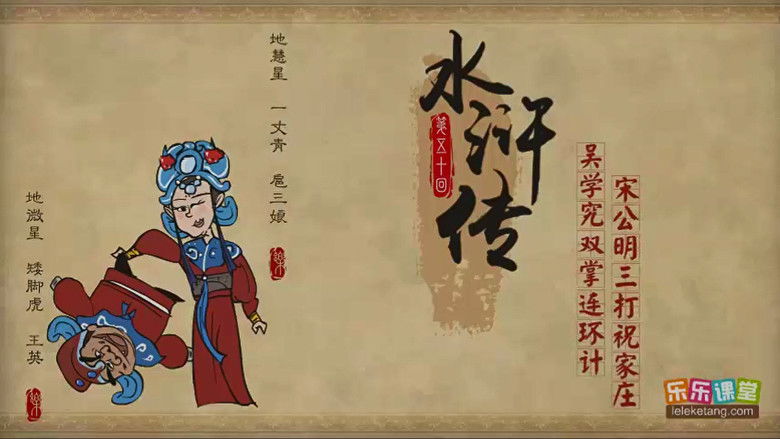 水浒传
第五十回
吴学究双掌连环计
宋公明三打祝家庄
地慧星 一丈青 扈三娘
地微星 矮脚虎 王英
乐乐课堂
leleketang.com